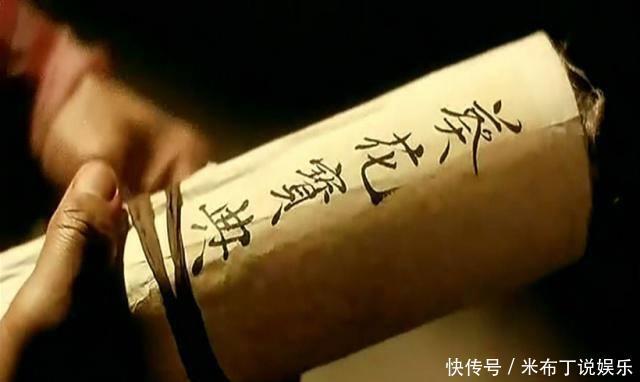 葵花寳典
快传号/米布丁说娱乐